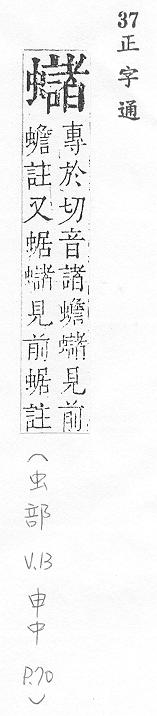 37正字通
蠩
專於切音諸蟾蠩見前
蟾註又蜛蠩見前蜛註
(虫部 V.13 申中 P.70)